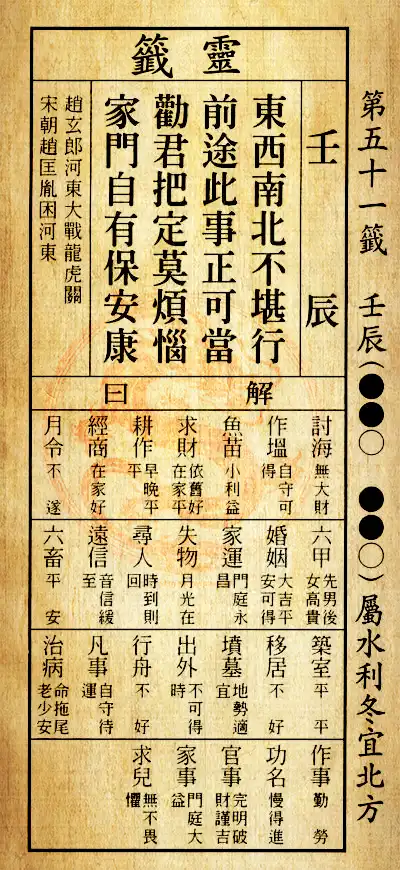 第五十一籤 壬辰(●●○ ●●○)屬水利冬宜北方
靈籤
壬辰
東西南北不堪行
前途此事正可當
勸君把定莫煩惱
家門自有保安康
趙玄郎河東大戰龍虎關
宋朝趙匡胤困河東
解曰
討海 無大財
作塭 自守可得
魚苗 小利益
求財 依舊好在家平
耕作 早晚平平
經商 在家好
月令 不遂
六甲 先男後女高貴
婚姻 大吉平安可得
家運 門庭永昌
失物 月光在
尋人 時到則回
遠信 音信緩至
六畜 平安
築室 平平
移居 不好
墳墓 地勢適宜
出外 不可得時
行舟 不好
凡事 自守待運
治病 命拖尾老少安
作事 勤勞
功名 慢得進
官事 完明破財謹吉
家事 門庭大益
求兒 無不畏懼